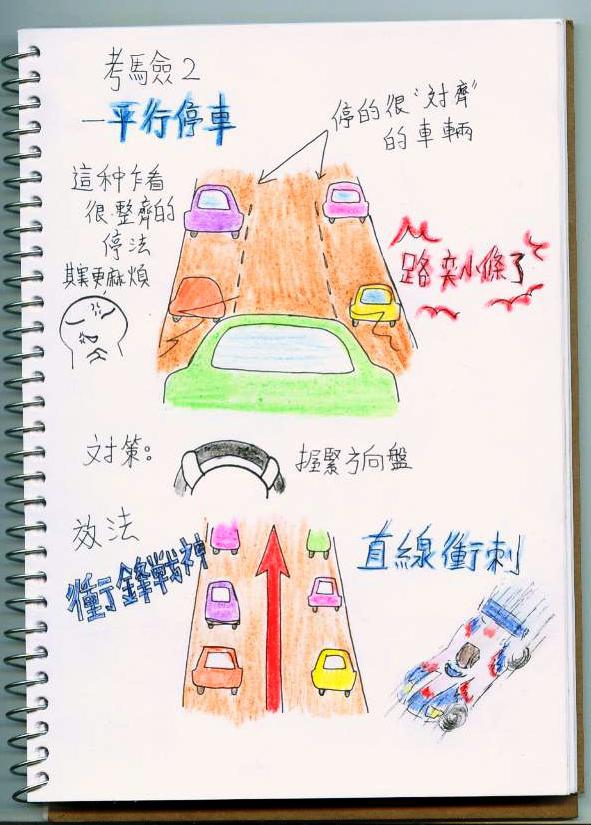 考馬險2
—平行停車
停的很"对齊"
的車輛
這种乍看
很整齊的
停法
其實更麻煩
路变小條了
对策:
握緊方向盤
效法
衝鋒戰神
直線衝刺